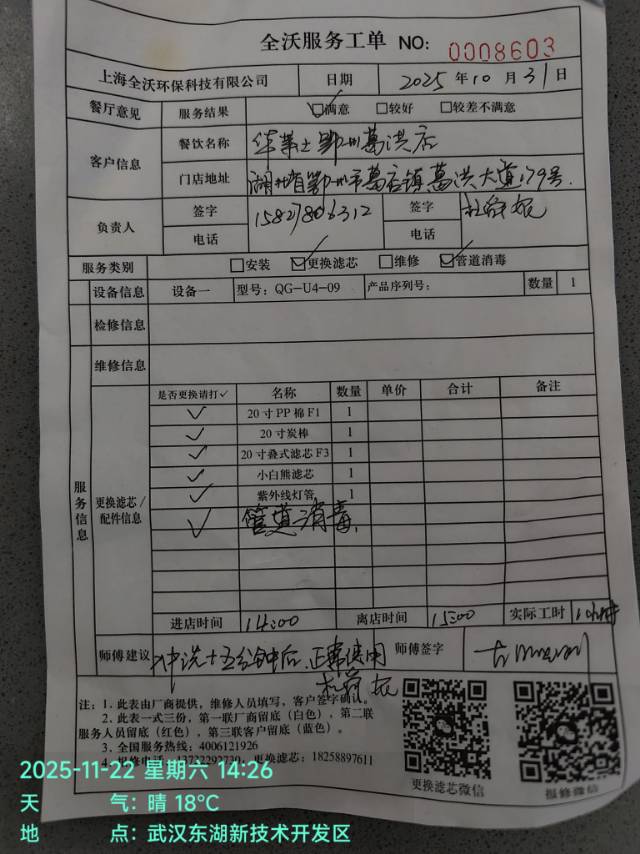 全沃服务工单 NO: 0008603
上海全沃环保科技有限公司 日期 2025年10月31日
餐厅意见 服务结果 满意 较好 较差不满意
客户信息 餐饮名称 华莱士鄂州葛洪店
门店地址 湖北省鄂州市葛店镇葛洪大道179号
负责人 签字 15827806312 签字
电话 电话
服务类别 安装 更换滤芯 维修 管道消毒
设备信息 设备一 型号: QG-U4-09 产品序列号: 数量 1
检修信息
维修信息
服务信息
更换滤芯/配件信息
是否更换请打✓ 名称 数量 单价 合计 备注
✓ 20寸PP棉F1 1
✓ 20寸炭棒 1
✓ 20寸叠式滤芯F3 1
✓ 小白熊滤芯 1
✓ 紫外线灯管 1
✓ 管道消毒
进店时间 14:00 离店时间 15:00 实际工时 1小时
师傅建议 冲洗十五分钟后.正常使用 师傅签字
注: 1.此表由厂商提供，维修人员填写，客户签字确认。
2.此表一式三份，第一联厂商留底（白色），第二联
服务人员留底（红色），第三联客户留底（蓝色）。
3.全国服务热线: 4006121926
4.报修电话: 更换滤芯: 18258897611
更换滤芯微信 报修微信
2025-11-22 星期六 14:26
天 气: 晴 18°C
地 点: 武汉东湖新技术开发区